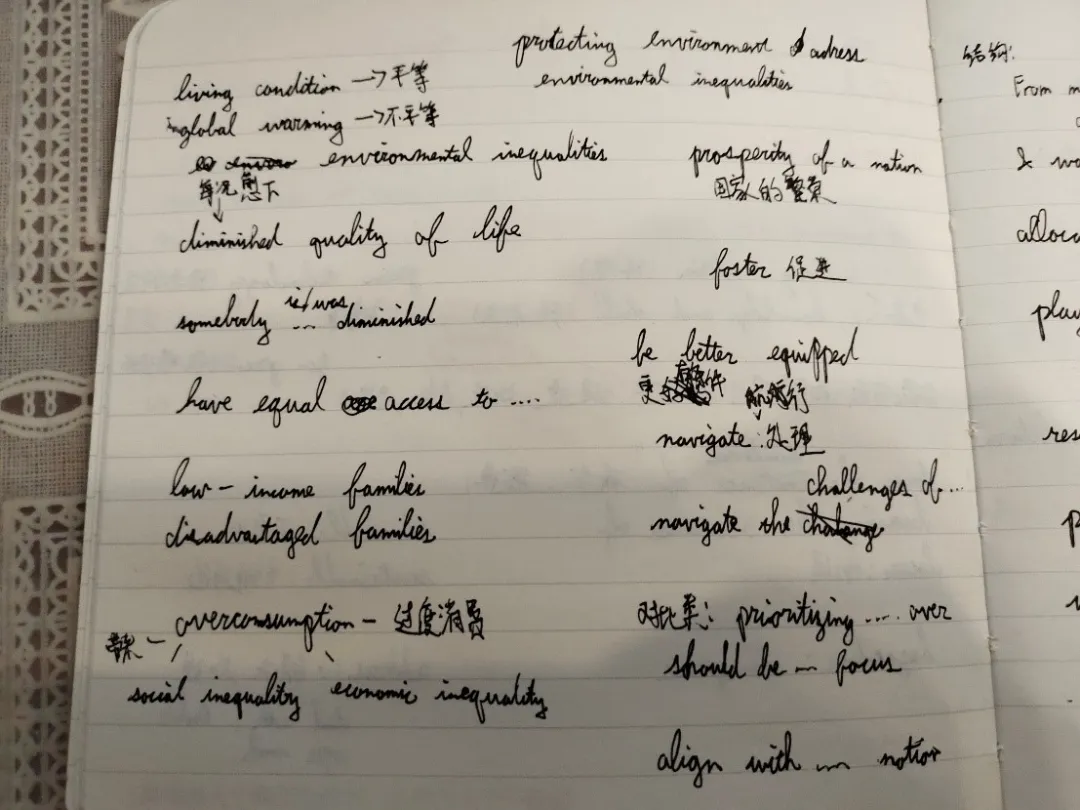 protecting environment adress
environmental inequalities
living condition → 平等
in global warming → 不平等
environmental inequalities
情况愈下
↓
diminished quality of life
somebody is/was ... diminished
have equal access to ....
low-income families
disadvantaged families
overconsumption - 过度消费
social inequality economic inequality
prosperity of a nation
国家的繁荣
foster 促进
be better equipped
更
航行
navigate: 处理
challenges of ...
navigate the
对比类: prioritizing .... over
should be ... focus
align with ... notion
结构:
From m
I wo
alloca
play
res
p